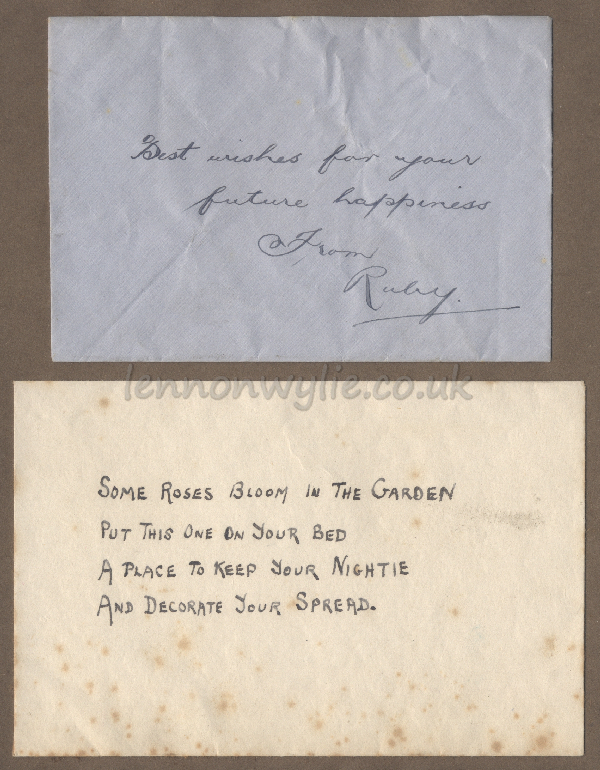 Best wishes for your
future happiness
From
Ruby.
lennonwylie.co.uk
SOME ROSES BLOOM IN THE GARDEN
PUT THIS ONE ON YOUR BED
A PLACE TO KEEP YOUR NIGHTIE
AND DECORATE YOUR SPREAD.